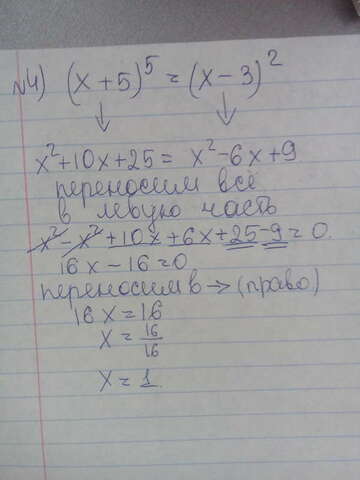 №4) (x + 5)⁵ = (x – 3)²
x² + 10x + 25 = x² – 6x + 9
переносим всё
в левую часть
x² – x² + 10x + 6x + 25 – 9 = 0
16x – 16 = 0
переносим в → (право)
16x = 16
x = 16/16
x = 1.